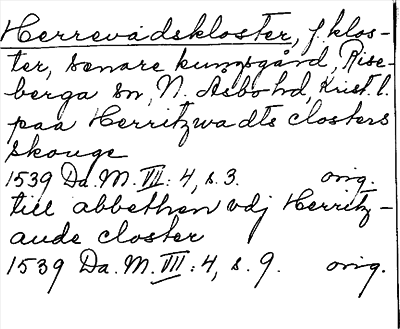 Herrevadskloster, f. klos-
ter, senare kungsgård, Rise-
berga sn, N. Åsbo hd, Krist. l.
paa Herritzwadts closters
skouge
1539 Da. M. III: 4, s. 3. orig.
till abbethen vdj Herritz-
aude closter
1539 Da. M. III: 4, s. 9. orig.